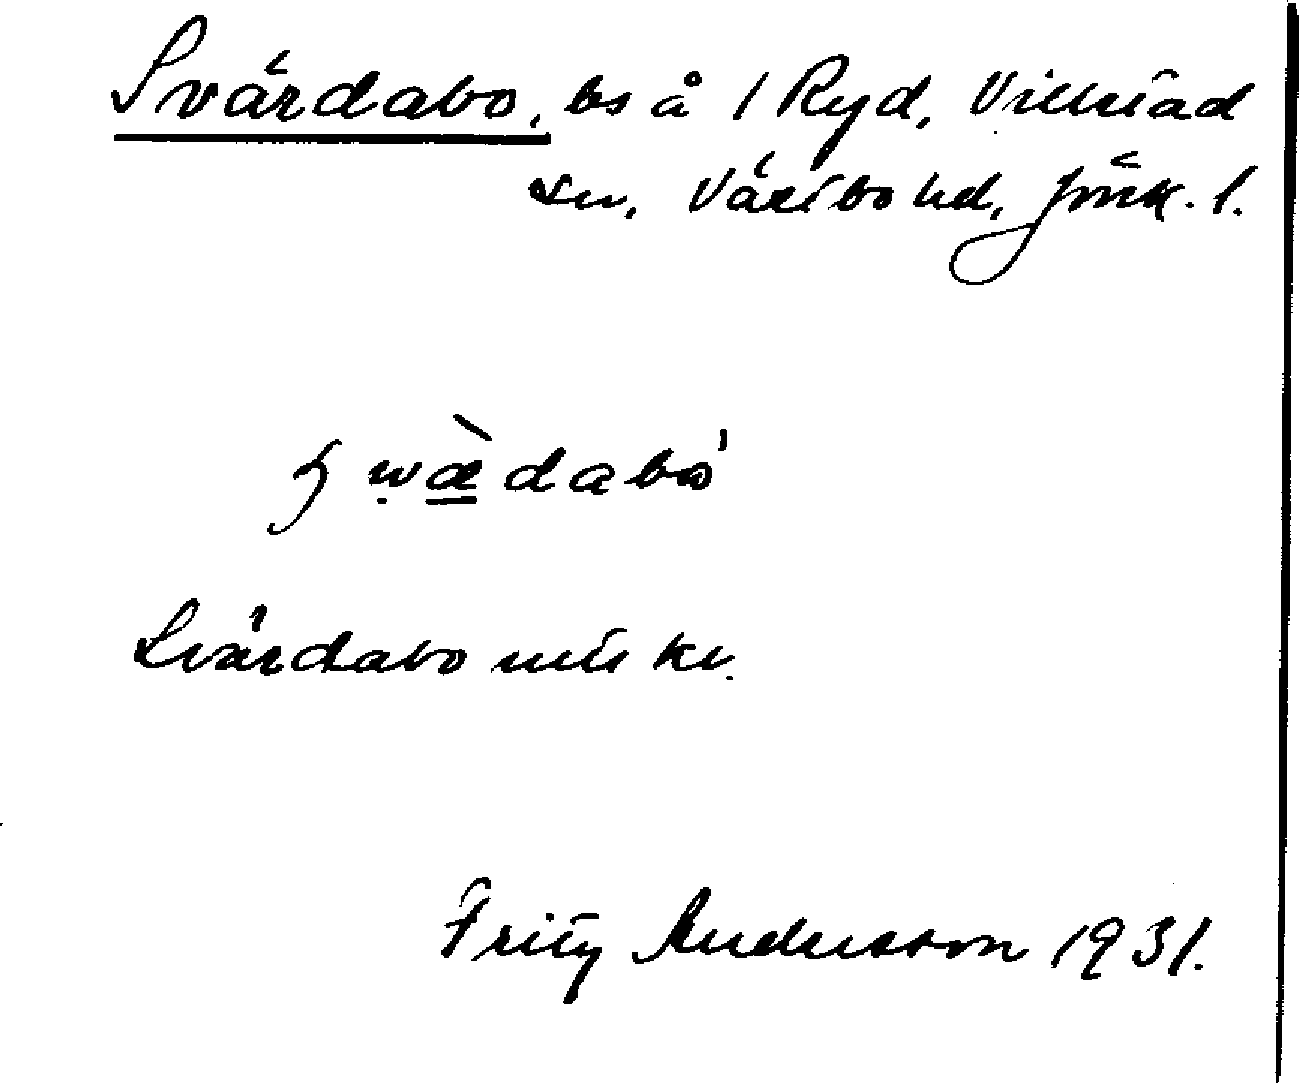 Svärdabo, bs å 1 Ryd, Villstad
sn, Västbo hd, Jönk. l.
wæ̀dabo
Svärdabo mts kv.
Fritz Andersson 1931.